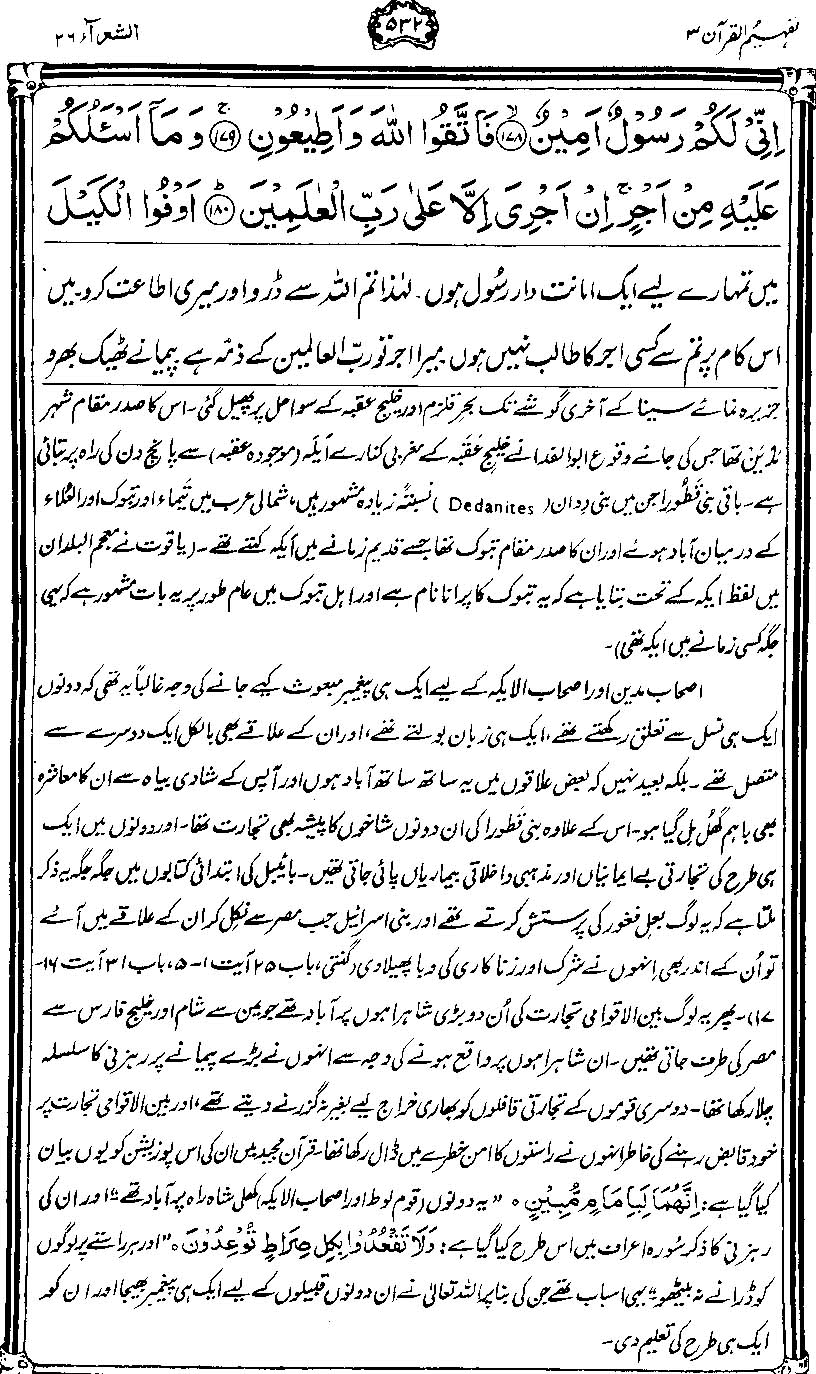 تفہیم القرآن ۳
۵۳۲
الشعرآء ۲۶
اِنِّیْ لَکُمْ رَسُوْلٌ اَمِیْنٌ ﴿۱۷۸﴾ فَاتَّقُوا اللّٰہَ وَاَطِیْعُوْنِ ﴿۱۷۹﴾ وَمَآ اَسْئَلُکُمْ
عَلَیْہِ مِنْ اَجْرٍ ۚ اِنْ اَجْرِیَ اِلَّا عَلٰی رَبِّ الْعٰلَمِیْنَ ﴿۱۸۰﴾ اَوْفُوا الْکَیْلَ
میں تمہارے لیے ایک امانت دار رسُول ہوں۔ لہٰذا تم اللہ سے ڈرو اور میری اطاعت کرو۔ میں
اس کام پر تم سے کسی اجر کا طالب نہیں ہوں۔ میرا اجر تو ربّ العالمین کے ذمّہ ہے۔ پیمانے ٹھیک بھرو
جزیرہ نمائے سینا کے آخری گوشے تک بحر قلزم اور خلیج عقبہ کے سواحل پر پھیل گئی۔ اس کا صدر مقام شہر
مَدْیَن تھا جس کی جائے وقوع ابوالفدا نے خلیج عَقَبہ کے مغربی کنارے اَیلَہ (موجودہ عقبہ) سے پانچ دن کی راہ پر بتائی
ہے۔ باقی بنی قَطُورا جن میں بنی دِدان (Dedanites) نسبتًہ زیادہ مشہور ہیں، شمالی عرب میں تَیماء اور تبوک اور العُلاء
کے درمیان آباد ہوئے اور ان کا صدر مقام تبوک تھا جسے قدیم زمانے میں اَیکہ کہتے تھے۔ (یاقوت نے معجم البلدان
میں لفظ ایکہ کے تحت بتایا ہے کہ یہ تبوک کا پرانا نام ہے اور اہل تبوک میں عام طور پر یہ بات مشہور ہے کہ یہی
جگہ کسی زمانے میں ایکہ تھی)۔
اصحاب مدین اور اصحاب الایکہ کے لیے ایک ہی پیغمبر مبعوث کیے جانے کی وجہ غالباً یہ تھی کہ دونوں
ایک ہی نسل سے تعلق رکھتے تھے، ایک ہی زبان بولتے تھے، اور ان کے علاقے بھی بالکل ایک دوسرے سے
متصل تھے۔ بلکہ بعید نہیں کہ بعض علاقوں میں یہ ساتھ ساتھ آباد ہوں اور آپس کے شادی بیاہ سے ان کا معاشرہ
بھی باہم گھُل مِل گیا ہو۔ اس کے علاوہ بنی قَطُورا کی ان دونوں شاخوں کا پیشہ بھی تجارت تھا۔ اور دونوں میں ایک
ہی طرح کی تجارتی بے ایمانیاں اور مذہبی و اخلاقی بیماریاں پائی جاتی تھیں۔ بائیبل کی ابتدائی کتابوں میں جگہ جگہ یہ ذکر
ملتا ہے کہ یہ لوگ بعلِ فغور کی پرستش کرتے تھے اور بنی اسرائیل جب مصر سے نکل کر ان کے علاقے میں آئے
تو اُن کے اندر بھی انہوں نے شرک اور زناکاری کی وبا پھیلا دی (گنتی، باب ۲۵ آیت ۱-۵، باب ۳۱ آیت ۱۶-
۱۷)۔ پھر یہ لوگ بین الاقوامی تجارت کی اُن دو بڑی شاہراہوں پر آباد تھے جو یمن سے شام اور خلیج فارس سے
مصر کی طرف جاتی تھیں۔ ان شاہراہوں پر واقع ہونے کی وجہ سے انہوں نے بڑے پیمانے پر رہزنی کا سلسلہ
چلا رکھا تھا۔ دوسری قوموں کے تجارتی قافلوں کو بھاری خراج لیے بغیر نہ گزرنے دیتے تھے، اور بین الاقوامی تجارت پر
خود قابض رہنے کی خاطر انہوں نے راستوں کا امن خطرے میں ڈال رکھا تھا۔ قرآن مجید میں ان کی اس پوزیشن کو یوں بیان
کیا گیا ہے: اِنَّھُمَا لَبِاِمَامٍ مُّبِیْنٍ ہ "یہ دونوں (قوم لوط اور اصحاب الایکہ) کھلی شاہ راہ پر آباد تھے"، اور ان کی
رہزنی کا ذکر سُورہ اعراف میں اس طرح کیا گیا ہے: وَلَا تَقْعُدُوْا بِکُلِّ صِرَاطٍ تُوْعِدُوْنَ ہ "اور ہر راستے پر لوگوں
کو ڈرانے نہ بیٹھو" یہی اسباب تھے جن کی بنا پر اللہ تعالیٰ نے ان دونوں قبیلوں کے لیے ایک ہی پیغمبر بھیجا اور ان کو
ایک ہی طرح کی تعلیم دی۔